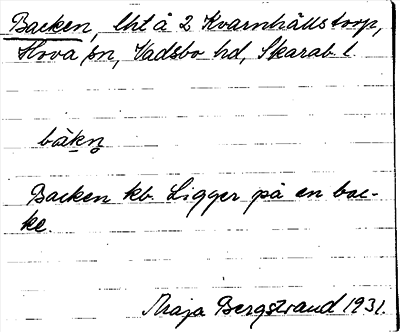 Backen, lht å 2 Kvarnhällstorp,
Hova sn, Vadsbo hd, Skarab. l.
bàkn̥
Backen kb. Ligger på en bac-
ke.
Maja Bergstrand 1931.